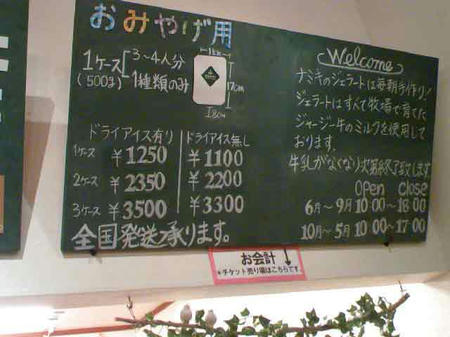 おみやげ用
1ケース
(500ml)
3〜4人分
1種類のみ
11cm
12cm
ドライアイス有り ドライアイス無し
1ケース ¥1250 ¥1100
2ケース ¥2350 ¥2200
3ケース ¥3500 ¥3300
全国発送承ります。
Welcome
ナミキのジェラートは毎朝手作り!
ジェラートはすべて牧場で育てた
ジャージー牛のミルクを使用して
おります。
牛乳がなくなり次第終了致します
open close
6月〜9月 10:00〜18:00
10月〜5月 10:00〜17:00
お会計
*チケット売り場はこちらです。